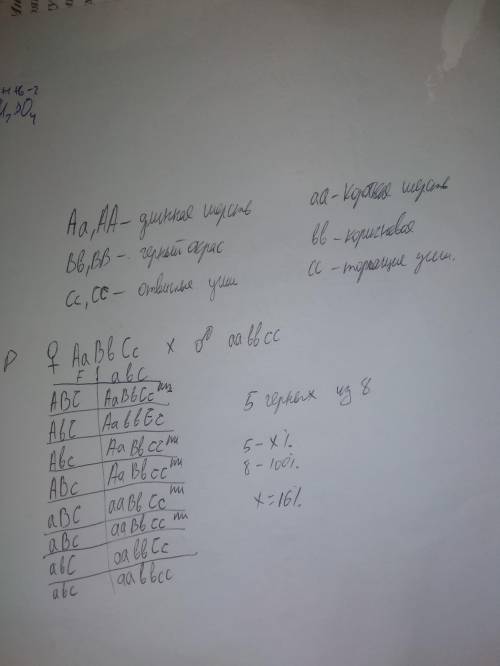 Аа, АА – длинная шерсть
аа – короткая шерсть
Вв, ВВ – черный окрас
вв – коричневая
Сс, СС – отвислые уши
сс – торчащие уши.
Р ♀ АаВвСс х ♂ ааввсс
F | авс
АВС | АаВвСс
АвС | АаввСс
Авс | АаВвсс
АВс | АаВвсс
аВС | ааВвСс
аВс | ааВвсс
авС | ааввСс
авс | ааввсс
5 черных из 8
5 – х%
8 – 100%
х = 16%